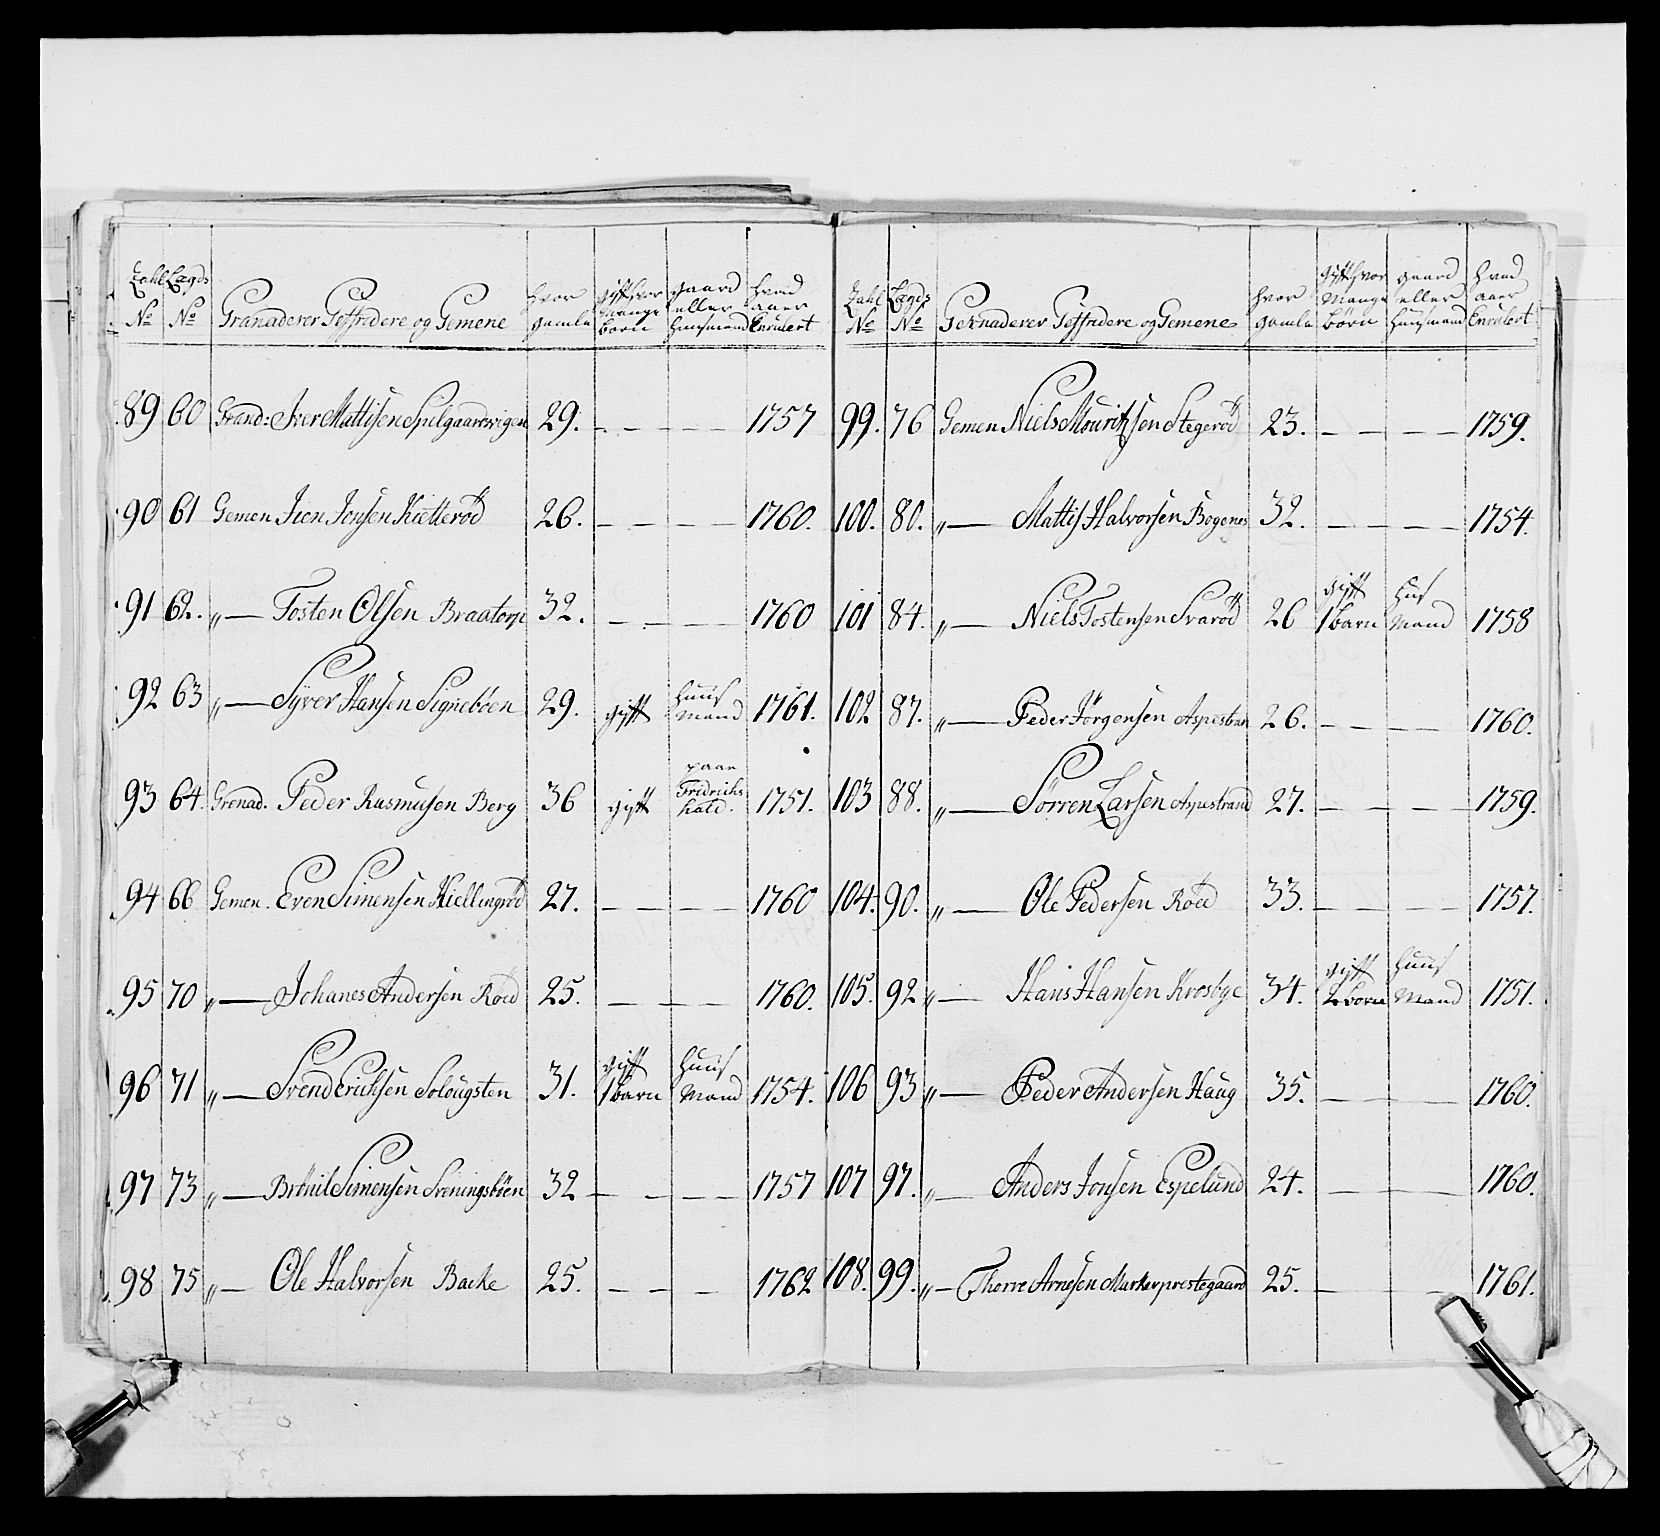 Zahl Lægds hvor gift hvor gaard hvad
No No Granaderer Geffridere og Gemene gamle mange børn eller huusmand aar Enrulert
89 60 Grand: Iver Mattisen Spelgaardsvigen 29. - - - - 1757
90 61 Gemen Jion Jonsen Kietterød 26. - - - - 1760.
91 62. „— Tosten Olsen Braatorp 32. - - - - 1760
92 63 „— Syver Hansen Signebøen 29. gift huus mand 1761.
93 64. Grenad. Peder Rasmusen Berg 36 gift paa Fridrichs hald. 1751.
94 66 Gemen. Even Simensen Kiellingrød 27. - - - - 1760
95 70 „— Johanes Andersen Röed 25. - - - - 1760.
96 71 „— Svend Erichsen Solougsten 31. gift 1 barn huus mand 1754.
97 73 „— Simensen Sveningsbøen 32 - - - - 1757
98 75 „— Ole Halvorsen Backe 25. - - - - 1762
Zahl Lægds hvor gift hvor gaard hvad
No No Gernaderer Geffridere og Gemene gamle mange børn eller huusmand aar Enrulert
99. 76 Gemen Niels Mouritzsen Stegerød 23. - - - - 1759.
100. 80. „— Mattis Halvorsen Bogenes 32. - - - - 1754.
101 84. „— Niels Tostensen Svarød 26 gift 1 barn Hus mand 1758
102 87. „— Peder Jörgensen 26. - - - - 1760.
103 88. „— Sørren Larsen Aspestrand 27. - - - - 1759.
104. 90. „— Ole Pedersen Röed 33. - - - - 1757.
105. 92 „— Hans Hansen Krosbye 34. gift 2 børn huus mand 1751.
106 93 „— Peder Andersen Haug 35. - - - - 1760.
107 97. „— Anders Jonsen Espelund 24. - - - - 1760.
108. 99. „— Thorre Arnesen Markerprestegaard 25. - - - - 1761.